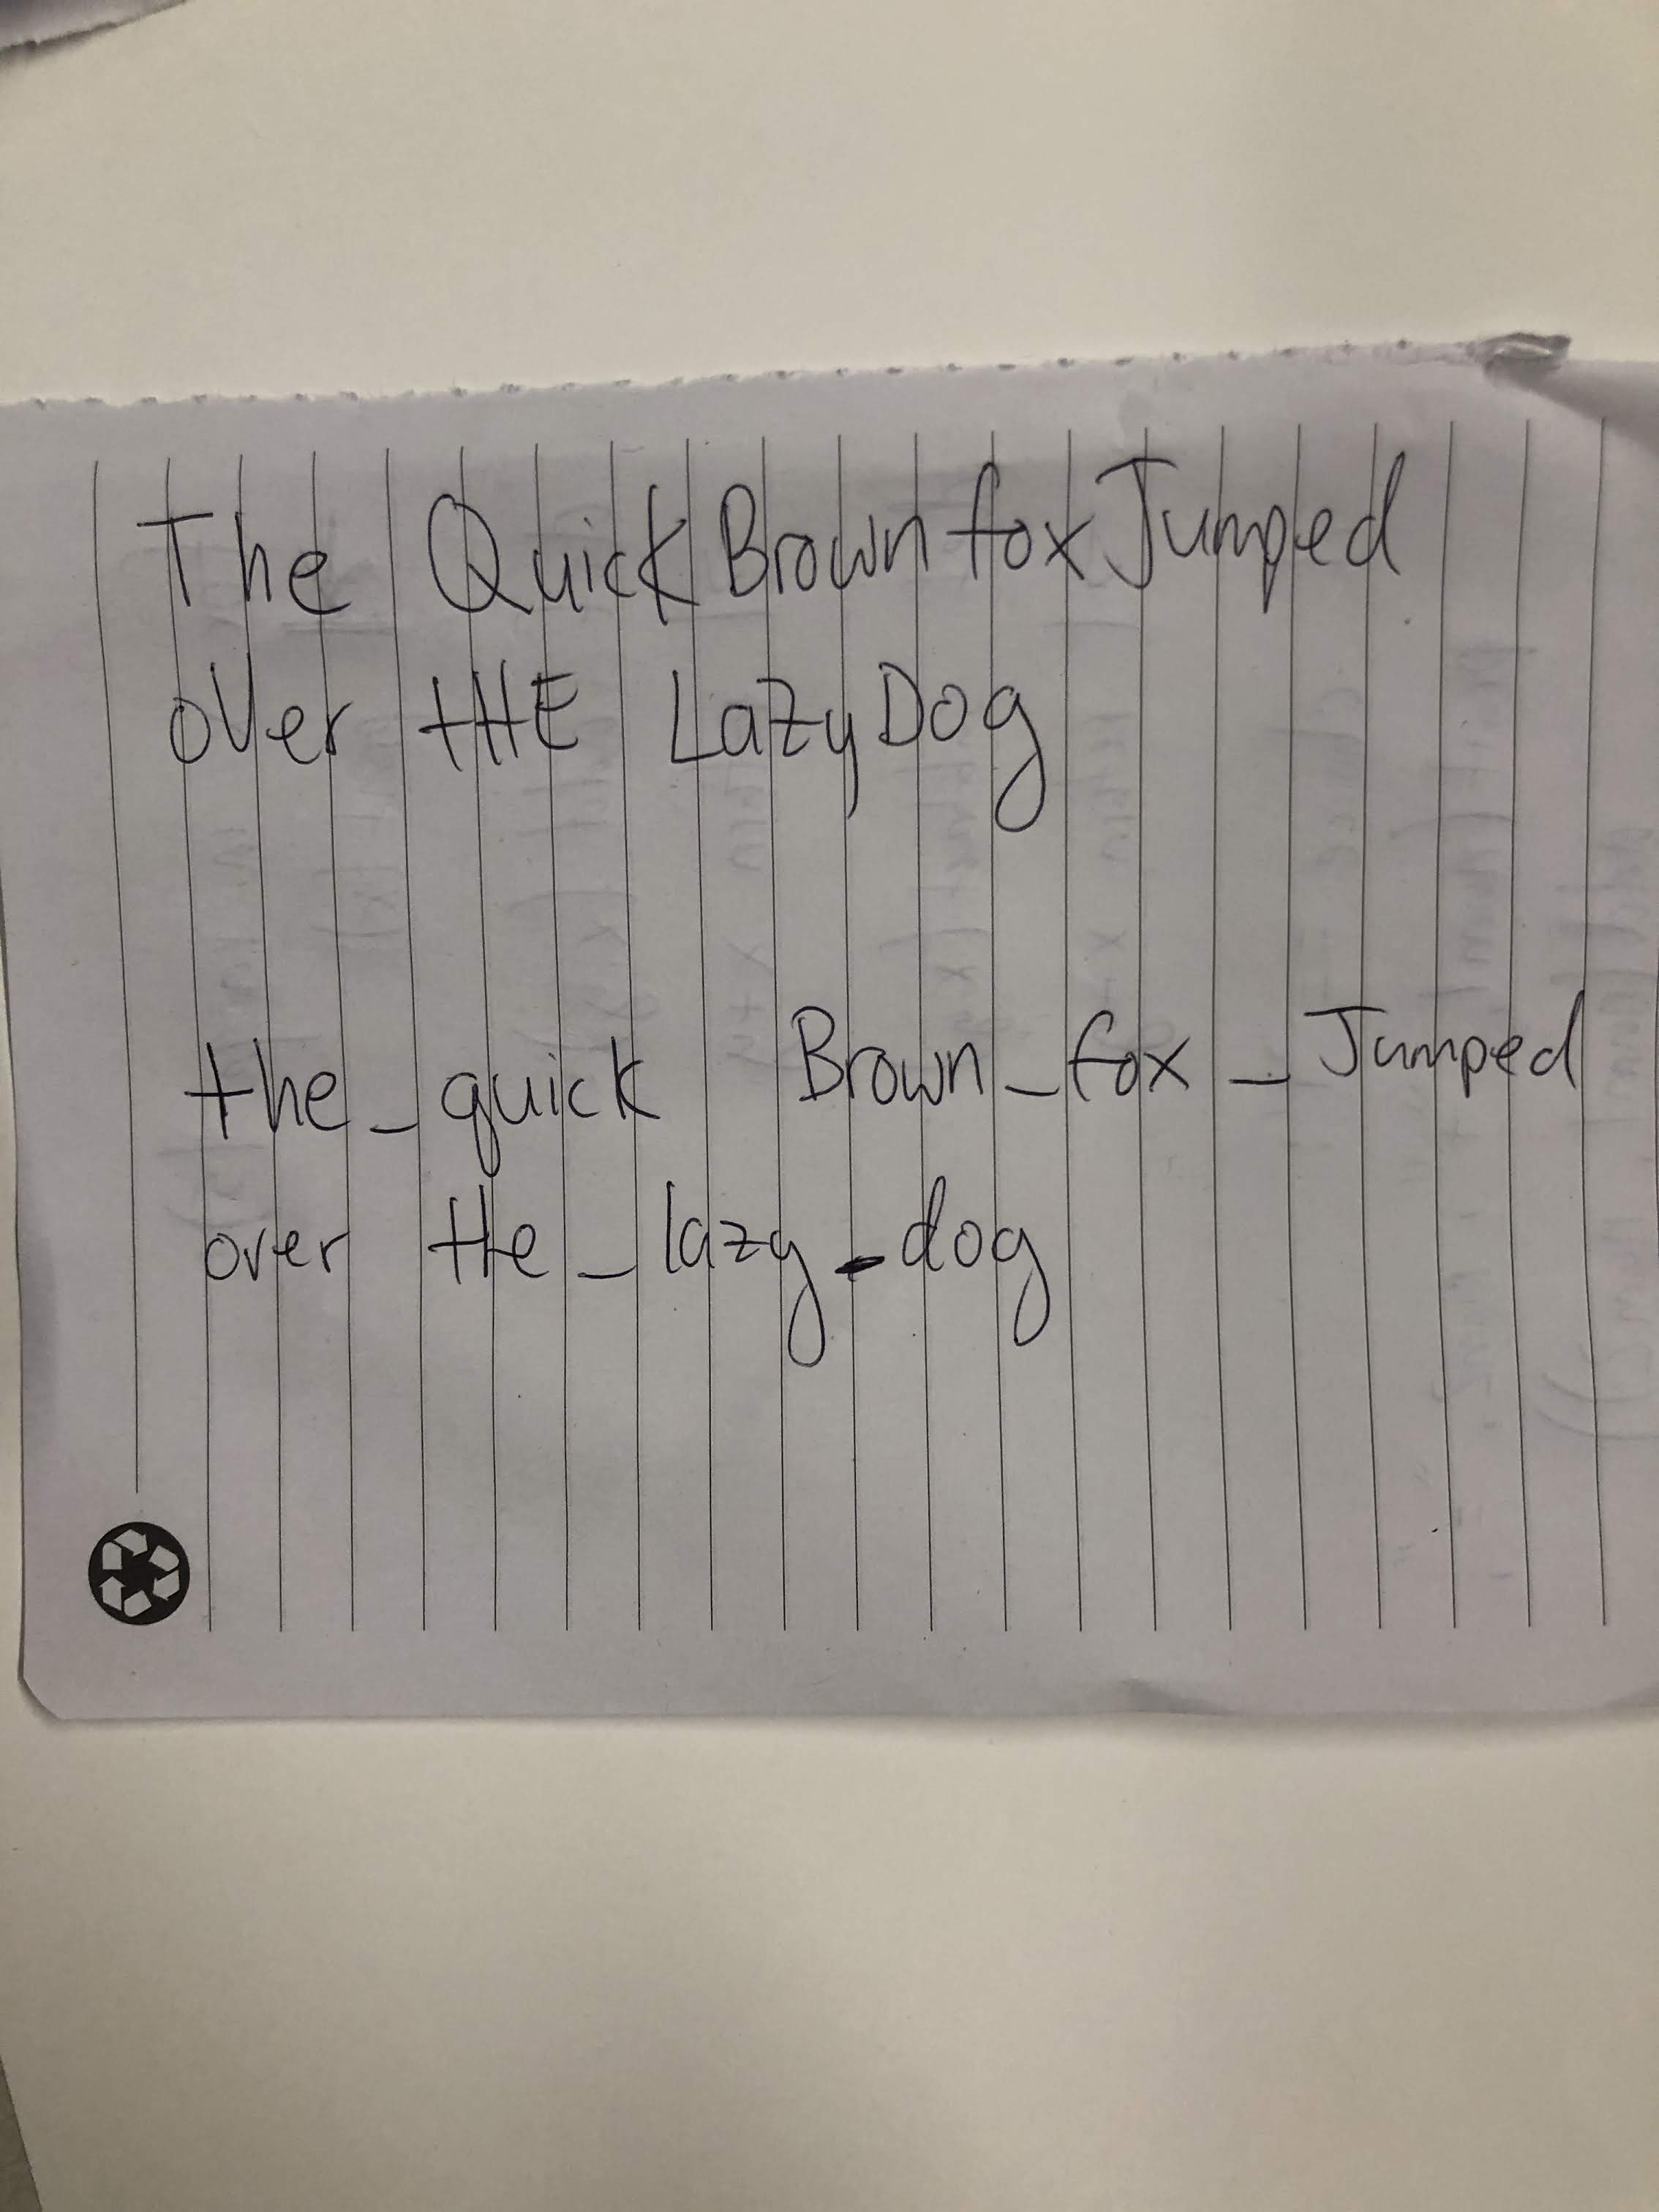 The QuickBrown fox Jumped
over tHE LazyDog
the_quick Brown_fox_Jumped
over tHe_lazy_dog